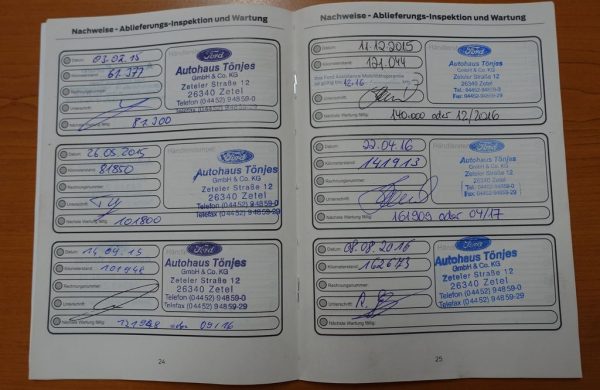 Nachweise - Ablieferungs-Inspektion und Wartung
Datum: 03.02.15
Kilometerstand: 61.977
Rechnungsnummer:
Unterschrift:
Nächste Wartung fällig: 81.900
Ford
Autohaus Tönjes
GmbH & Co. KG
Zeteler Straße 12
26340 Zetel
Telefon (04452) 94859-0
Telefax (04452) 94859-29
Datum: 26.05.2015
Kilometerstand: 81850
Rechnungsnummer:
Unterschrift:
Nächste Wartung fällig: 101800
Ford
Autohaus Tönjes
GmbH & Co. KG
Zeteler Straße 12
26340 Zetel
Telefon (04452) 94859-0
Telefax (04452) 94859-29
Datum: 14.09.15
Kilometerstand: 101948
Rechnungsnummer:
Unterschrift:
Nächste Wartung fällig: 121948 oder 09/16
Ford
Autohaus Tönjes
GmbH & Co. KG
Zeteler Straße 12
26340 Zetel
Telefon (04452) 94859-0
Telefax (04452) 94859-29
24
Nachweise - Ablieferungs-Inspektion und Wartung
Datum: 11.12.2015
Kilometerstand: 121.044
Ihre Ford Assistance Mobilitätsgarantie
ist gültig bis: 12.16
Unterschrift:
Nächste Wartung fällig: 140.000 oder 12/2016
Ford
Autohaus Tönjes
GmbH & Co. KG
Zeteler Straße 12
26340 Zetel
Tel. 04452-94859-0
Fax: 04452-94859-29
Datum: 22.04.16
Kilometerstand: 141913
Rechnungsnummer:
Unterschrift:
Nächste Wartung fällig: 161909 oder 04/17
Ford
Autohaus Tönjes
GmbH & Co. KG
Zeteler Straße 12
26340 Zetel
Tel. 04452-94859-0
Fax: 04452-94859-29
Datum: 08.08.2016
Kilometerstand: 162673
Rechnungsnummer:
Unterschrift:
Nächste Wartung fällig:
Ford
Autohaus Tönjes
GmbH & Co. KG
Zeteler Straße 12
26340 Zetel
Telefon (04452) 94859-0
Telefax (04452) 94859-29
25